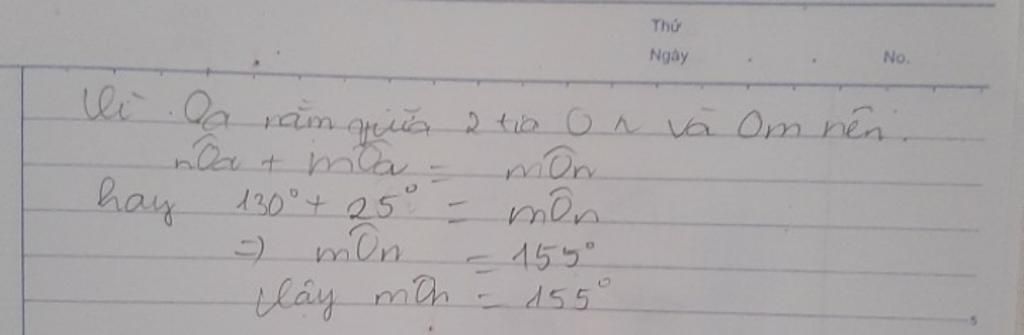 Thứ
Ngày . . No.
Vì Oa nằm giữa 2 tia On và Om nên.
nÔa + mÔa = mÔn
hay 130° + 25° = mÔn
=> mÔn = 155°
Vậy mÔn = 155°
5